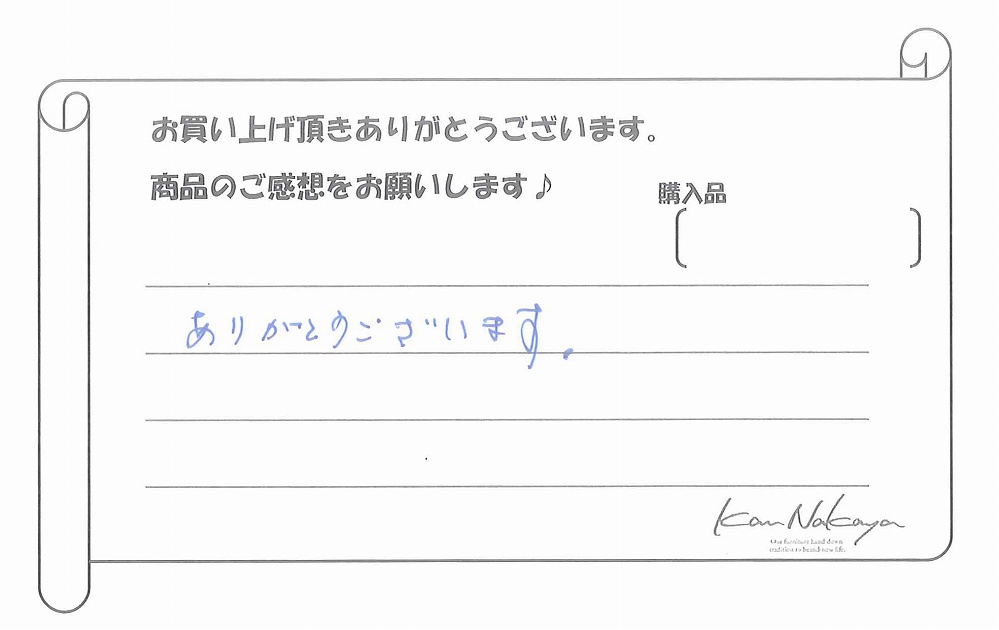 お買い上げ頂きありがとうございます。
商品のご感想をお願いします♪
購入品
ありがとうございます.
Kan Nakaya
Our furniture hand down
tradition to brand-new life.